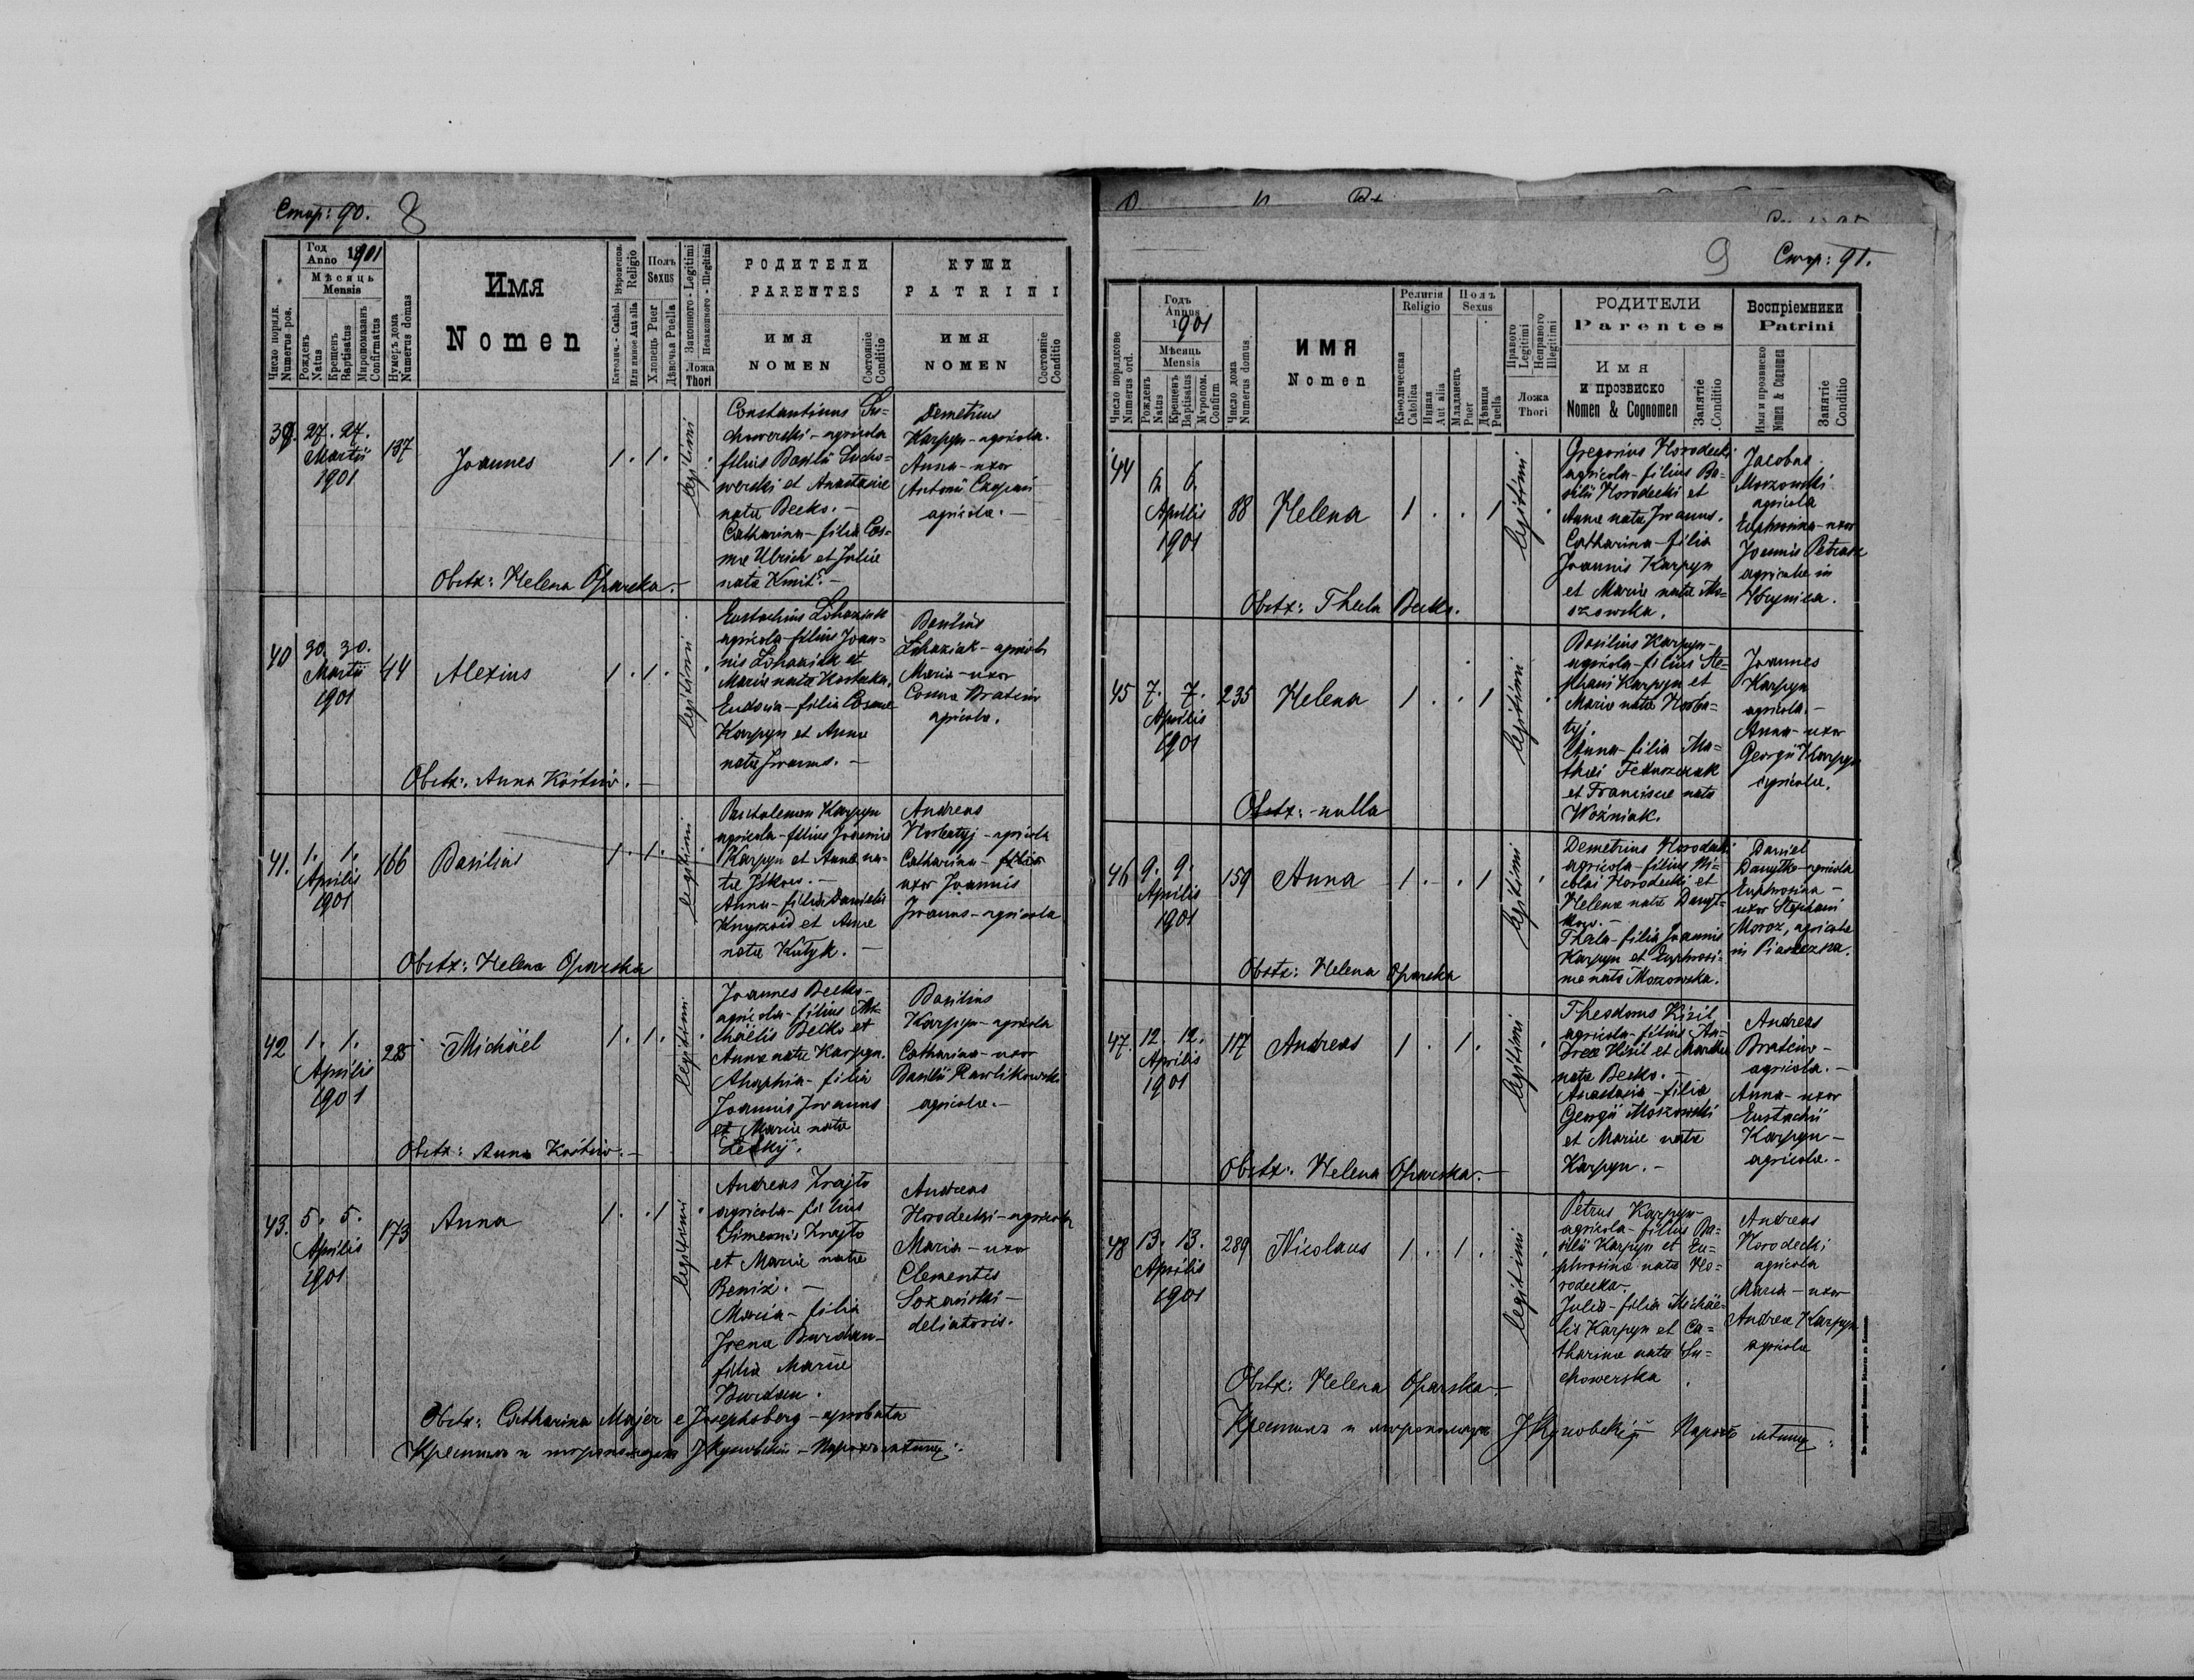 Стор: 90. 8
Число порядк. Numerus pos.
Год Anno 1901
Мѣсяць Mensis
Рожденъ Natus
Крещенъ Baptisatus
Миропомазанъ Confirmatus
Нумеръ дома Numerus domus
Имя
Nomen
Religio
Католич. - Cathol.
Или иное Aut alia
Полъ Sexus
Хлопець Puer
Дѣвочка Puella
Законного - Legitimi
Незаконного - Illegitimi
Ложа Thori
РОДИТЕЛИ
PARENTES
ИМЯ
NOMEN
Состояніе Conditio
КУМИ
PATRINI
ИМЯ
NOMEN
Состояніе Conditio
39. 27. 27. Martii 1901 137 Joannes 1. 1. legitimi
Constantinus Su=
chowerski - agricola
filius Basilii Sucho=
werski et Anastasiae
natae Becko. -
Catharina - filia Cos=
mae Ulrich et Juliae
natae Kmit. -
Demetrius
Karpyn - agricola.
Anna - uxor
Antonii
agricolae. -
Obstx: Helena Oparska. -
40 30. 30. Martii 1901 44 Alexius 1. 1. legitimi
Eustachius
agricola - filius Joan=
nis et
Mariae natae
Eudocia - filia Cosmae
Karpyn et Annae
natae Iwanus. -
Basilius
agricola
Maria - uxor
Cosmae Bratciw
agricolae.
Obstx: Anna Kostiw. -
41. 1. 1. Aprilis 1901 166 Basilius 1. 1. legitimi
Karpyn
agricola - filius Joannis
Karpyn et Annae na=
tae -
Anna - filia Danielis
et Annae
natae Kutyk. -
Andreas
Horbatyj - agricola
Catharina - filia
uxor Joannis
Iwanus - agricola
Obstx: Helena Oparska
42 1. 1. Aprilis 1901 285 Michäel 1. 1. legitimi
Joannes Becko -
agricola - filius Mi=
chäelis Becko et
Annae natae Karpyn.
Ahaphia - filia
Joannis Iwanus
et Mariae natae
Basilius
Karpyn - agricola
Catharina - uxor
Basilii Pawlikowski
agricolae. -
Obstx: Anna Kostiw. -
43. 5. 5. Aprilis 1901 173 Anna 1. .1 legitimi
Andreas Zrajto
agricola - filius
Simeonis Zrajto
et Mariae natae
Beniz. -
Maria - filia
Irenae Burdan -
filia Mariae
Burdan.
Andreas
Horodecki - agricola
Maria - uxor
Clementis
Sozański -
Obstx: Catharina Majer e Josephsberg - aprobata
Стор: 91. 9
Число порядкове Numerus ord.
Годъ Annus 1901
Мѣсяць Mensis
Рожденъ Natus
Крещенъ Baptisatus
Мvропом. Confirm.
Число дома Numerus domus
ИМЯ
Nomen
Религія Religio
Каѳолическая Catolica
Инная Aut alia
Полъ Sexus
Младанецъ Puer
Дѣвиця Puella
Правого Legitimi
Неправого Illegitimi
Ложа Thori
РОДИТЕЛИ
Parentes
Имя
и прозвиско
Nomen & Cognomen
Занятіе Conditio
Воспріемники
Patrini
Имя и прозвиско
Nomen & Cognomen
Занятіе Conditio
44 6. 6. Aprilis 1901 88 Helena 1 . . 1 legitimi
Gregorius Horodecki
agricola - filius Ba=
silii Horodecki et
Annae natae Iwanus.
Catharina - filia
Joannis Karpyn
et Mariae natae Mo=
szowska.
Jacobus
Moszowski
agricola
Euphrosina - uxor
Joannis Petrasz
agricolae in
Obstx: Thecla Becko.
45 7. 7. Aprilis 1901 235 Helena 1 . . 1 legitimi
Basilius Karpyn -
agricola - filius Ste=
phani Karpyn et
Mariae natae Horba=
tyj.
Anna - filia Ma=
thei
et Franciscae natae
Woźniak.
Joannes
Karpyn
agricola. -
Anna - uxor
Georgii Karpyn
agricolae.
Obstx: - nulla
46 9. 9. Aprilis 1901 159 Anna 1 . . 1 legitimi
Demetrius Horodecki
agricola - filius Ni=
colai Horodecki et
Helenae natae Danył=
kow. -
Thecla - filia Joannis
Karpyn et Euphrosi=
nae natae Moszowska.
Daniel
Danyłko - agricola
Euphrosina -
uxor Stephani
Moroz, agricolae
in Piaseczna.
Obstx: Helena Oparska
47. 12. 12. Aprilis 1901 117 Andreas 1 . 1. legitimi
Theodorus Kizil
agricola - filius An=
dreae Kizil et Marthae
natae Becko. -
Anastasia - filia
Georgii Moszowski
et Mariae natae
Karpyn. -
Andreas
Bratciw -
agricola. -
Anna - uxor
Eustachii
Karpyn -
agricolae. -
Obstx: Helena Oparska. -
48 13. 13. Aprilis 1901 289 Nicolaus 1 . 1 . legitimi
Petrus Karpyn -
agricola - filius Ba=
silii Karpyn et Eu=
phrosinae natae Ho=
rodecka.
Julia - filia Michäe=
lis Karpyn et Ca=
tharinae natae Su=
chowerska.
Andreas
Horodecki
agricola
Maria - uxor
Andreae Karpyn
agricolae
Obstx: Helena Oparska. -